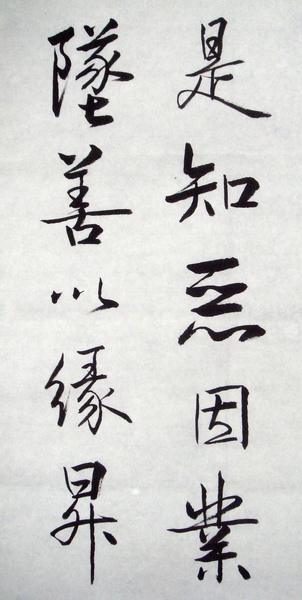 是知惡因業
墜善以緣昇